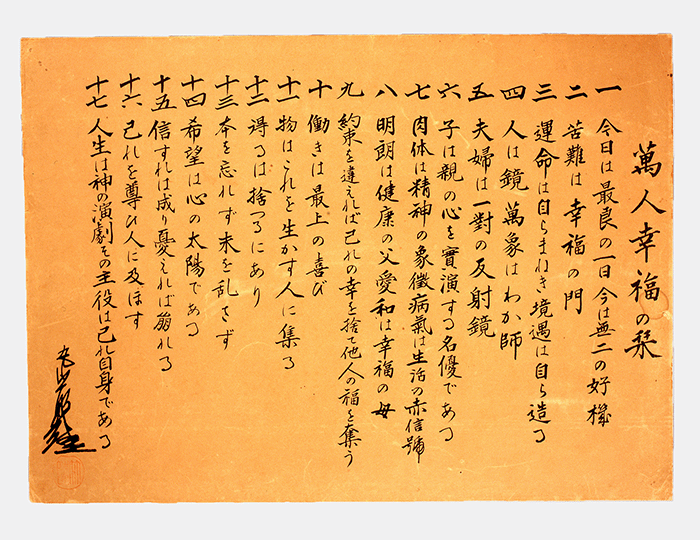 萬人幸福の栞
一 今日は最良の一日今は無二の好機
二 苦難は幸福の門
三 運命は自らまねき境遇は自ら造る
四 人は鏡萬象はわが師
五 夫婦は一對の反射鏡
六 子は親の心を實演する名優である
七 肉体は精神の象徴病氣は生活の赤信號
八 明朗は健康の父愛和は幸福の母
九 約束を違えれば己れの幸を捨て他人の福を奪う
十 働きは最上の喜び
十一 物はこれを生かす人に集る
十二 得るは捨つるにあり
十三 本を忘れず末を乱さず
十四 希望は心の太陽である
十五 信ずれは成り憂えれば崩れる
十六 己れを尊び人に及ぼす
十七 人生は神の演劇その主役は己れ自身である